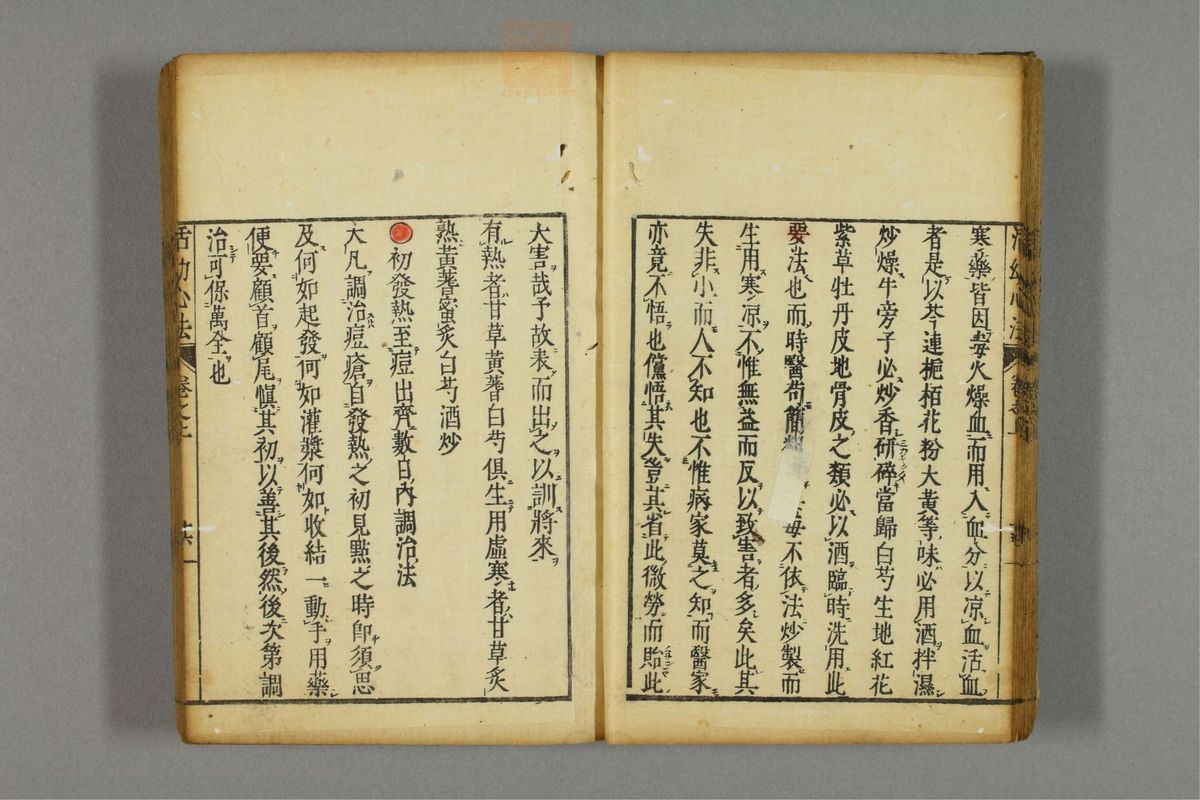 寒藥皆因毒火燥血而用入血分以凉血活血
者是以芩連梔栢花粉大黃等味必用酒拌濕
炒燥牛旁子必炒香研碎當歸白芍生地紅花
紫草牡丹皮地骨皮之類必以酒臨時洗用此
要法也而時醫苟簡 每不依法炒製而
生用寒凉不惟無益而反以致害者多矣此其
失非小而人不知也不惟病家莫之知而醫家
亦竟不悟也儻悟其失豈其省此微勞而貽此
大害哉予故表而出之以訓將來
有熱者甘草黃蓍白芍俱生用虛寒者甘草炙
熟黃蓍蜜炙白芍酒炒
初發熱至痘出齊數日內調治法
大凡調治痘瘡自發熱之初見點之時卽須思
及何如起發何如灌漿何如收結一動手用藥
便要顧首顧尾愼其初以善其後然後次第調
治可保萬全也
活幼心法 卷之二